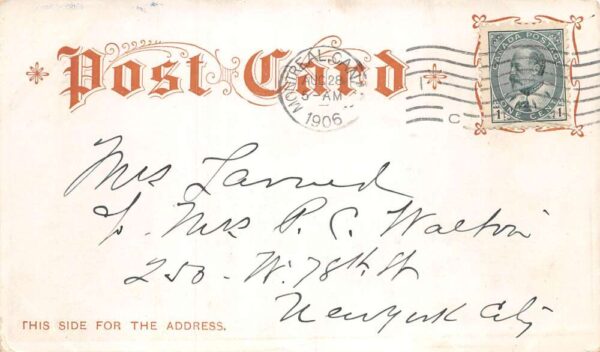 Post Card
MONTREAL, CAN.
AUG 28
5-AM
1906
C
CANADA POSTAGE
1 ONE CENT 1
Mrs Larned
℅ Mrs P. C. Walton
250 - W. 78th St
New York City
THIS SIDE FOR THE ADDRESS.